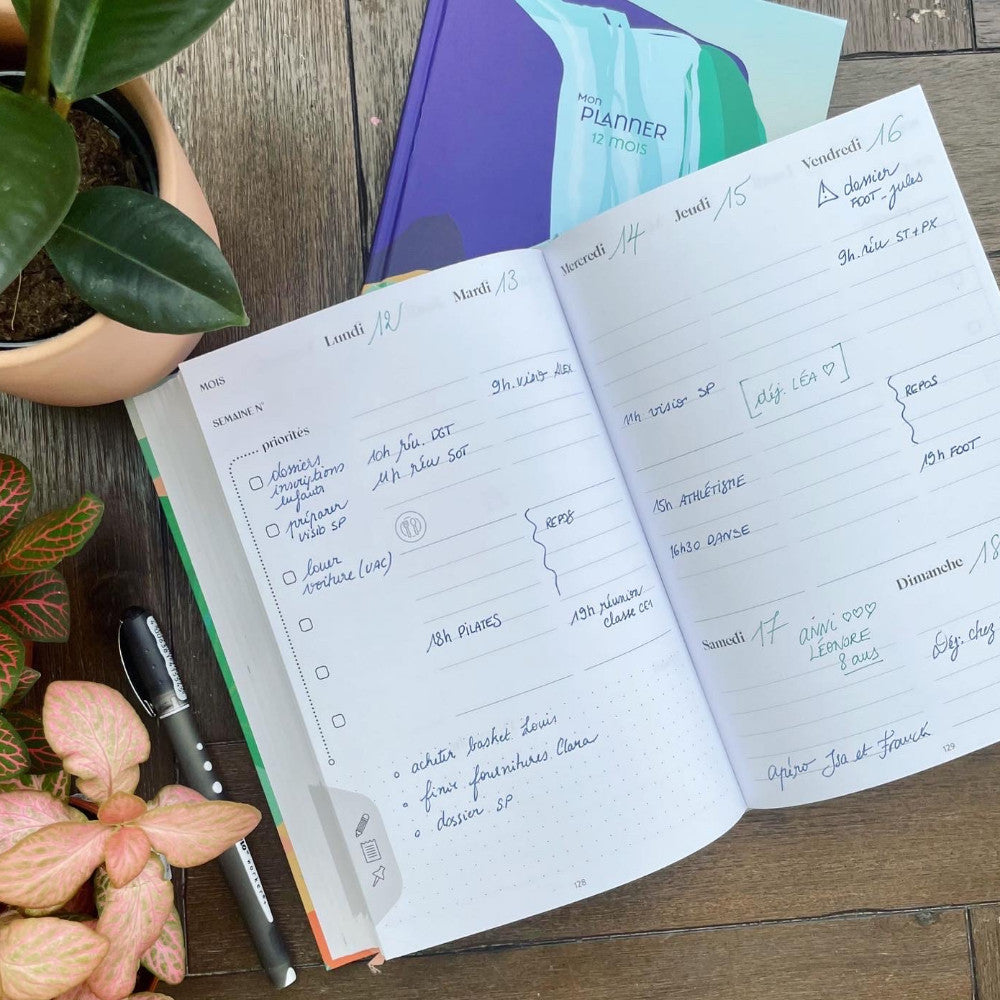 Mon
PLANNER
12 MOIS
MOIS
SEMAINE N°
priorités
dossiers
inscriptions
enfants
préparer
visio SP
louer
voiture (VAC)
Lundi 12
10h réu. DGT
11h réu SOT
18h PILATES
Mardi 13
9h. visio ALEX
REPOS
19h réunion
classe CE1
acheter basket Louis
finir fournitures Clara
dossier SP
128
Mercredi 14
11h visio SP
15h ATHLÉTISME
16h30 DANSE
Jeudi 15
déj. LÉA ♡
Vendredi 16
⚠ dossier
FOOT - Jules
9h. réu ST + PX
REPOS
19h FOOT
Samedi 17
ANNI ♡♡♡
LÉONORE
8 ans
Apéro Isa et Franck
Dimanche 18
Déj. chez
129